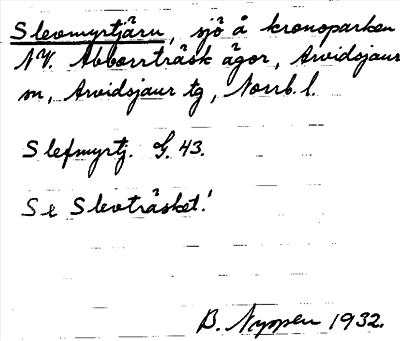 Slevomyrtjärn, sjö å kronoparken
NV. Abborrträsk ägor, Arvidsjaur
sn, Arvidsjaur tg, Norrb. l.
Slefmyrtj. G. 43.
Se Slevträsket!
B. Nyppen 1932.